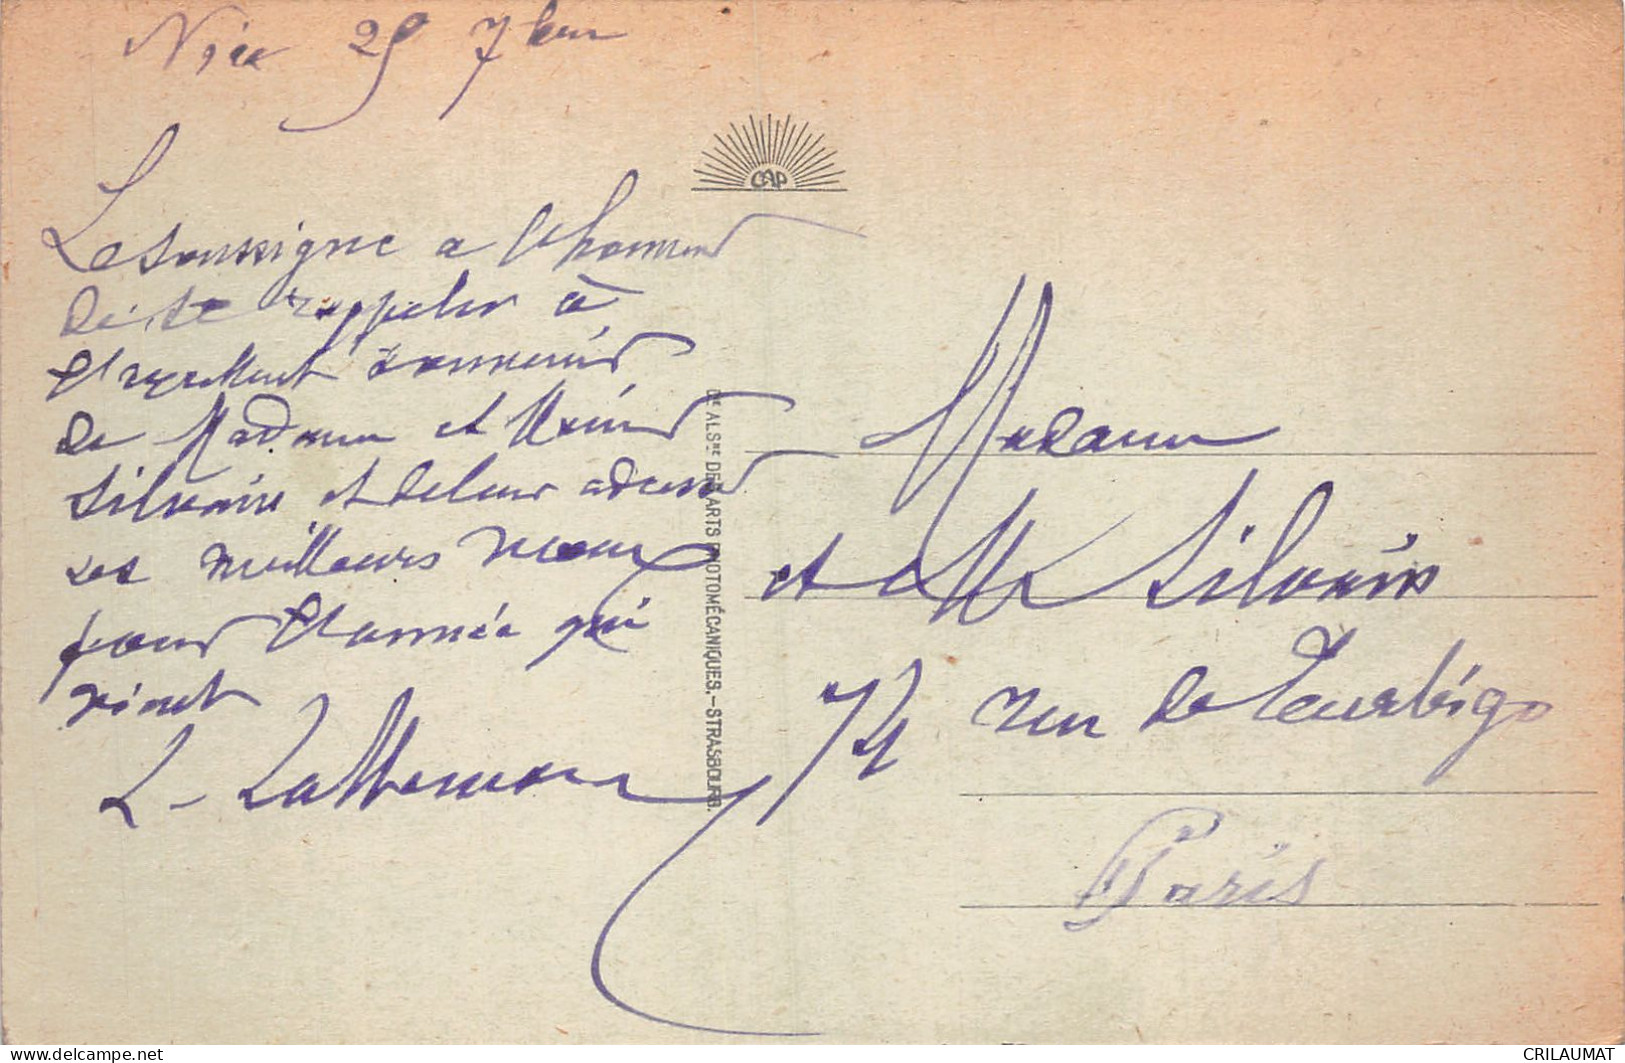 Nice 25 7bre
CAP
Le soussigné a l'honneur
de se rappeler à
l'excellent souvenir
de Madame et Monsieur
Silvain et de leur adresser
ses meilleurs voeux
pour l'année qui
vient
L.
Cie ALSNE DES ARTS PHOTOMÉCANIQUES.-STRASBOURG.
Madame
et Mr Silvain
74 rue de Turbigo
Paris
CRILAUMAT
www.delcampe.net